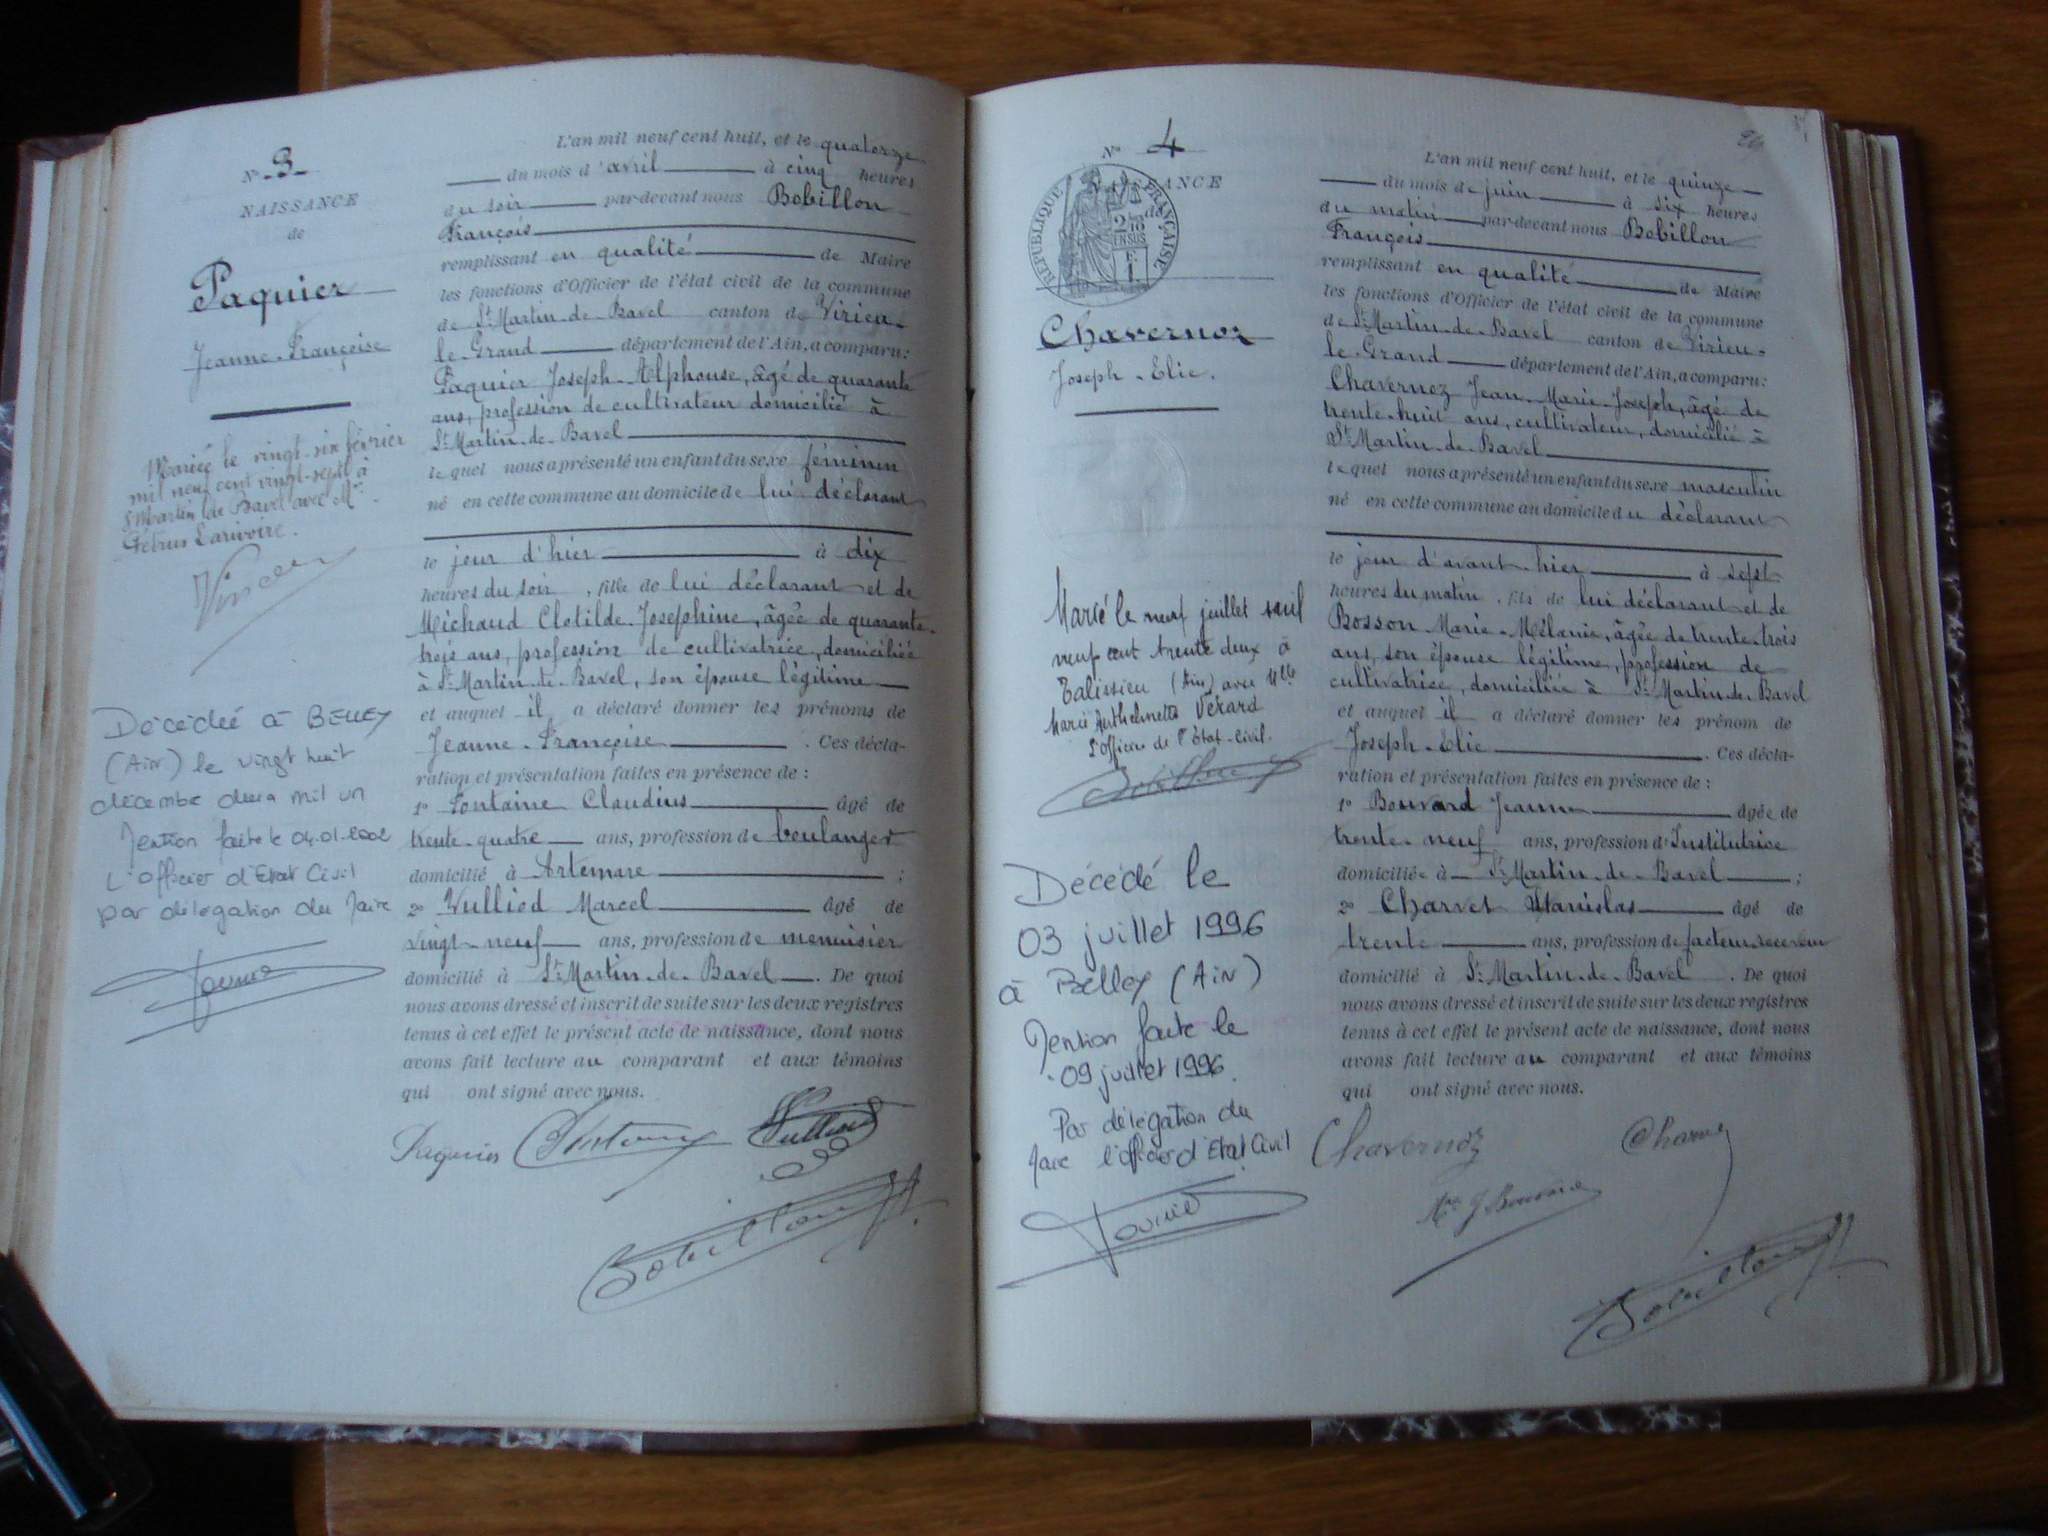 N° 3
NAISSANCE
de
Paquier
Jeanne-Françoise
Mariée le vingt-six février
mil neuf cent vingt-sept à
St Martin de Bavel avec Mr
Pétrus Larivoire.
Décédée à BELLEY
(Ain) le vingt huit
décembre deux mil un
Mention faite le 04.01.2002
L'Officier d'Etat Civil
par délégation du Maire
L'an mil neuf cent huit, et le quatorze
du mois d'avril à cinq heures
du soir par-devant nous Bobillon
François
remplissant en qualité de Maire
les fonctions d'Officier de l'état civil de la commune
de St Martin-de-Bavel canton de Virieu-
le-Grand département de l'Ain, a comparu:
Paquier Joseph-Alphonse, âgé de quarante
ans, profession de cultivateur domicilié à
St Martin-de-Bavel
le quel nous a présenté un enfant du sexe féminin
né en cette commune au domicile de lui déclarant
le jour d'hier à dix
heures du soir, fille de lui déclarant et de
Michaud Clotilde-Josephine, âgée de quarante-
trois ans, profession de cultivatrice, domiciliée
à St Martin-de-Bavel, son épouse légitime
et auquel il a déclaré donner les prénoms de
Jeanne-Françoise. Ces décla-
ration et présentation faites en présence de :
1° Fontaine Claudius âgé de
trente-quatre ans, profession de boulanger
domicilié à Artemare ;
2° Vulliod Marcel âgé de
vingt-neuf ans, profession de menuisier
domicilié à St Martin-de-Bavel. De quoi
nous avons dressé et inscrit de suite sur les deux registres
tenus à cet effet le présent acte de naissance, dont nous
avons fait lecture au comparant et aux témoins
qui ont signé avec nous.
Paquier
Bobillon
N° 4
RÉPUBLIQUE FRANÇAISE
Chavernoz
Joseph-Elie.
Marié le neuf juillet mil
neuf cent trente deux à
Talissieu (Ain) avec Mlle
Marie Anthelmette Vérard
L'officier de l'Etat-civil.
Bobillon
Décédé le
03 juillet 1996
à Belley (Ain)
Mention faite le
09 juillet 1996
Par délégation du
Maire l'officier d'Etat Civil
L'an mil neuf cent huit, et le quinze
du mois de juin à six heures
du matin par-devant nous Bobillon
François
remplissant en qualité de Maire
les fonctions d'Officier de l'état civil de la commune
de St Martin-de-Bavel canton de Virieu-
le-Grand département de l'Ain, a comparu:
Chavernoz Jean-Marie-Joseph, âgé de
trente-huit ans, cultivateur, domicilié à
St Martin-de-Bavel
le quel nous a présenté un enfant du sexe masculin
né en cette commune au domicile du déclarant
le jour d'avant-hier à sept
heures du matin, fils de lui déclarant et de
Bosson Marie-Mélanie, âgée de trente-trois
ans, son épouse légitime, profession de
cultivatrice, domiciliée à St Martin-de-Bavel
et auquel il a déclaré donner les prénom de
Joseph-Elie. Ces décla-
ration et présentation faites en présence de :
1° Bouvard Jeanne âgée de
trente-neuf ans, profession d'Institutrice
domiciliée à St Martin-de-Bavel ;
2° Charvet Stanislas âgé de
trente ans, profession de facteur-receveur
domicilié à St Martin-de-Bavel. De quoi
nous avons dressé et inscrit de suite sur les deux registres
tenus à cet effet le présent acte de naissance, dont nous
avons fait lecture au comparant et aux témoins
qui ont signé avec nous.
Chavernoz
Bobillon